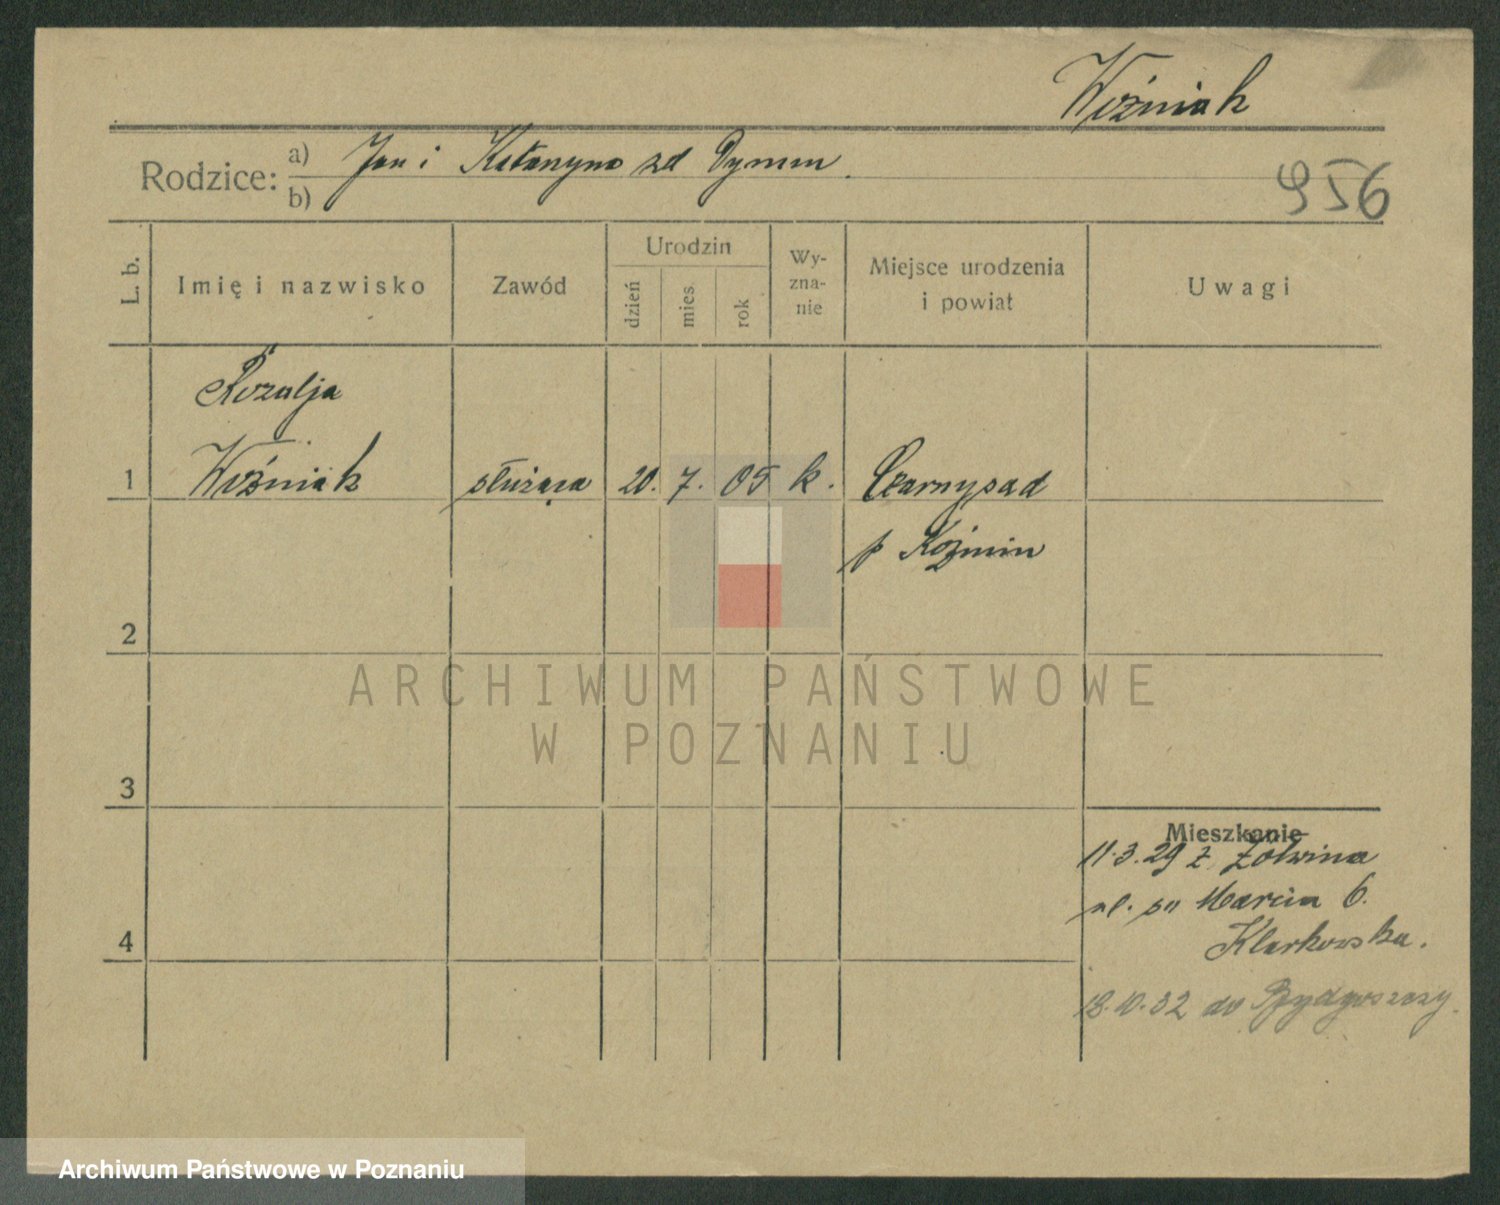 Woźniak
Rodzice: a) Jan i Katarzyna zd Dymm.
b)
956
L. b.
Imię i nazwisko
Zawód
Urodzin
dzień
mies
rok
Wy-
zna-
nie
Miejsce urodzenia
i powiat
Uwagi
Rozalja
1 Woźniak służąca 20. 7. 05 k. Czarnysad
p Koźmin
2
3
4
Mieszkanie
11.3.29 z Żółwina
ul. św Marcin 6.
18.10.32 do Bydgoszczy.
ARCHIWUM PAŃSTWOWE
W POZNANIU
Archiwum Państwowe w Poznaniu